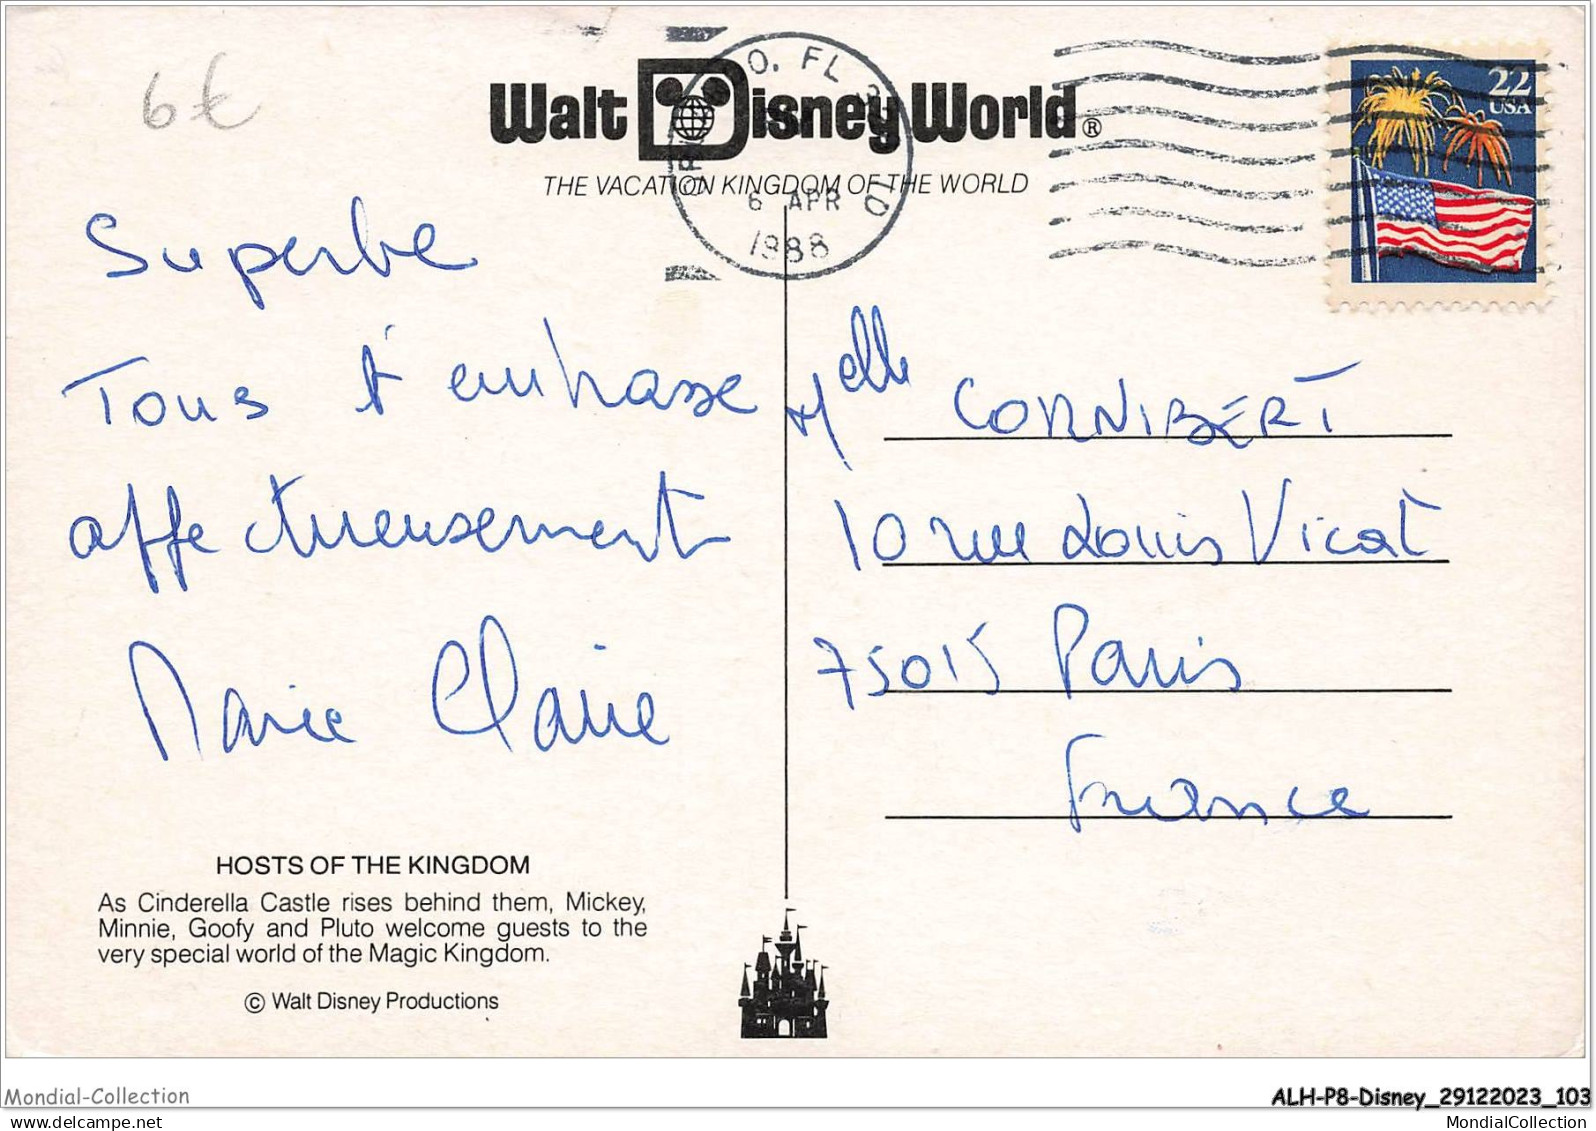 6€
Walt Disney World®
THE VACATION KINGDOM OF THE WORLD
O. FL
6 APR
1988
22
USA
Superbe
Tous t'embrasse
affectueusement
Marie Claire
Melle CORNIBERT
10 rue Louis Vicat
75015 Paris
France
HOSTS OF THE KINGDOM
As Cinderella Castle rises behind them, Mickey,
Minnie, Goofy and Pluto welcome guests to the
very special world of the Magic Kingdom.
© Walt Disney Productions
Mondial-Collection
ALH-P8-Disney_29122023_103
delcampe.net
MondialCollection